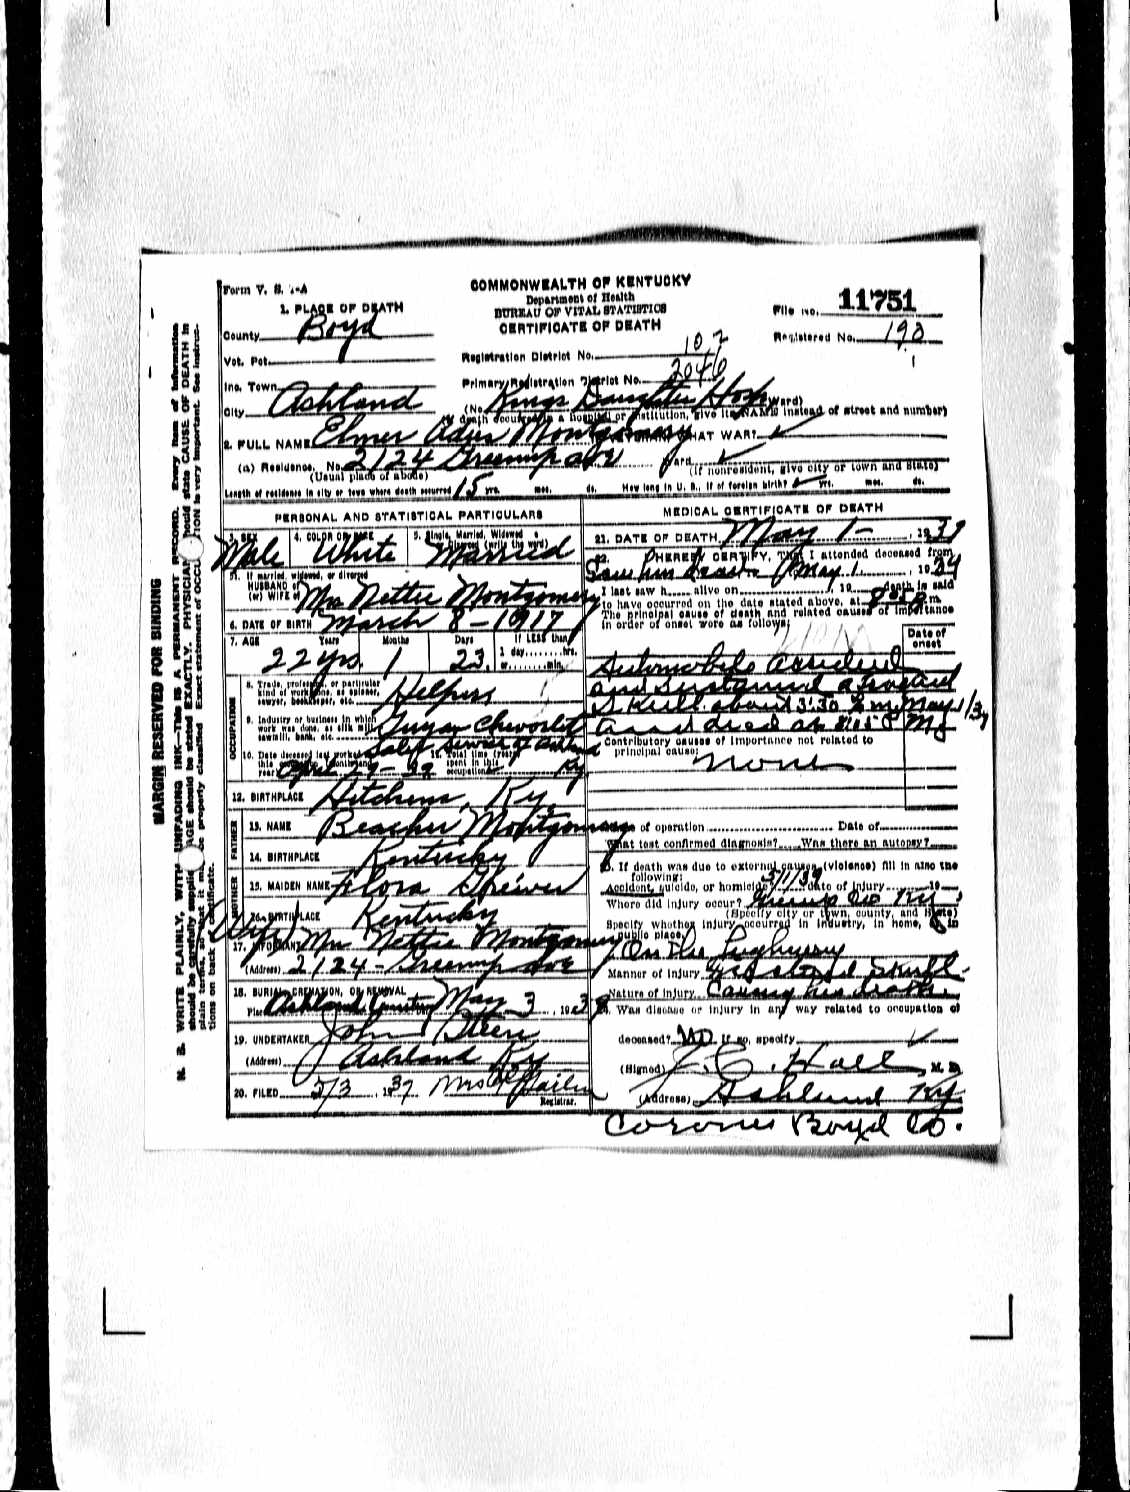 Form V. S. 1-A
COMMONWEALTH OF KENTUCKY
Department of Health
BUREAU OF VITAL STATISTICS
CERTIFICATE OF DEATH
File No. 11751
Registered No. 190
1. PLACE OF DEATH
County Boyd
Vot. Pct.
Inc. Town
City Ashland
Registration District No. 102
Primary Registration District No. 2046
(No. Kings Daughters Hosp Ward)
(If death occurred in a hospital or institution, give its NAME instead of street and number)
2. FULL NAME Elmer Montgomery WHAT WAR?
(a) Residence. No. 2124 Greenup Ave Ward
(Usual place of abode) (If nonresident, give city or town and State)
Length of residence in city or town where death occurred 15 yrs. mos. ds. How long in U. S., if of foreign birth? yrs. mos. ds.
PERSONAL AND STATISTICAL PARTICULARS
3. SEX Male
4. COLOR OR RACE White
5. Single, Married, Widowed or Divorced (write the word) Married
5a. If married, widowed, or divorced
HUSBAND of
(or) WIFE of Mrs Nettie Montgomery
6. DATE OF BIRTH March 8 - 1917
7. AGE Years Months Days If LESS than
22 yrs. 1 23. 1 day........hrs.
or........min.
OCCUPATION
8. Trade, profession, or particular
kind of work done, as spinner,
sawyer, bookkeeper, etc. Helper
9. Industry or business in which
work was done, as silk mill,
sawmill, bank, etc. Guyan Chevrolet
Sales Service of Ashland Ky
10. Date deceased last worked at
this occupation (month and
year) April 29-39
11. Total time (years)
spent in this
occupation
12. BIRTHPLACE Hitchins, Ky.
FATHER
13. NAME Beacher Montgomery
14. BIRTHPLACE Kentucky
MOTHER
15. MAIDEN NAME Flora
16. BIRTHPLACE Kentucky
17. INFORMANT Mrs Nettie Montgomery
(Address) 2124 Greenup Ave
18. BURIAL, CREMATION, OR REMOVAL
Place Ashland Cemetery May 3, 1939
19. UNDERTAKER John Steen
(Address) Ashland Ky
20. FILED 5/3, 1939 Mrs
Registrar.
MEDICAL CERTIFICATE OF DEATH
21. DATE OF DEATH May 1 - , 1939
22. I HEREBY CERTIFY, That I attended deceased from
Saw him dead May 1. , 1939
I last saw h...... alive on , 19 , death is said
to have occurred on the date stated above, at m.
The principal cause of death and related causes of importance
in order of onset were as follows:
Date of
onset
Automobile accident
and sustained a fractured
Skull about 3:30 P.m. May 1/39
and died at 8:05 P M.
Contributory causes of importance not related to
principal cause:
None
Name of operation Date of
What test confirmed diagnosis? Was there an autopsy?
23. If death was due to external causes (violence) fill in also the
following:
Accident, suicide, or homicide? 5/1/39 date of injury 19
Where did injury occur? Greenup Co Ky
(Specify city or town, county, and State)
Specify whether injury occurred in industry, in home, or in
public place. On the highway
Manner of injury Fractured Skull
Nature of injury Causing his death.
24. Was disease or injury in any way related to occupation of
deceased? NO If so, specify
(Signed) J. C. Hall, M. D.
(Address) Ashland Ky.
Coroner Boyd Co.
MARGIN RESERVED FOR BINDING
N. B. WRITE PLAINLY, WITH UNFADING INK—THIS IS A PERMANENT RECORD. Every item of information
should be carefully supplied. AGE should be stated EXACTLY. PHYSICIANS should state CAUSE OF DEATH in
plain terms, so that it may be properly classified. Exact statement of OCCUPATION is very important. See instruc-
tions on back of certificate.